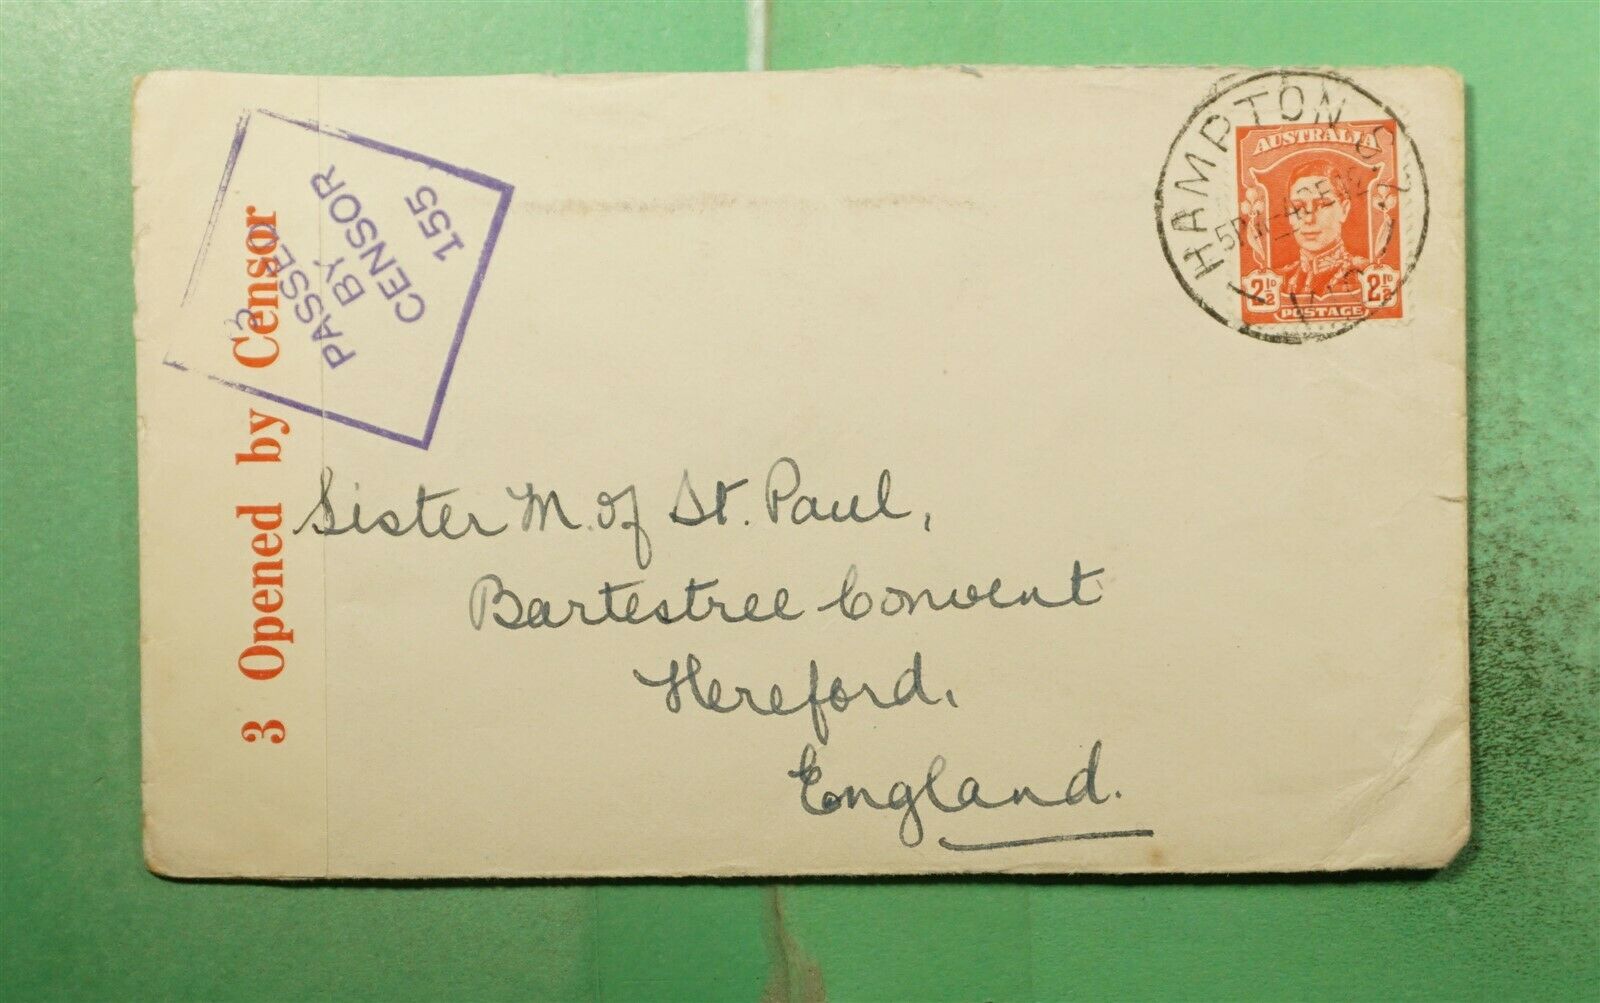 3 Opened by Censor
PASSED
BY
CENSOR
155
3
HAMPTON S.7
VIC
AUSTRALIA
2½D 2½D
POSTAGE
Sister M. of St. Paul,
Bartestree Convent
Hereford,
England.